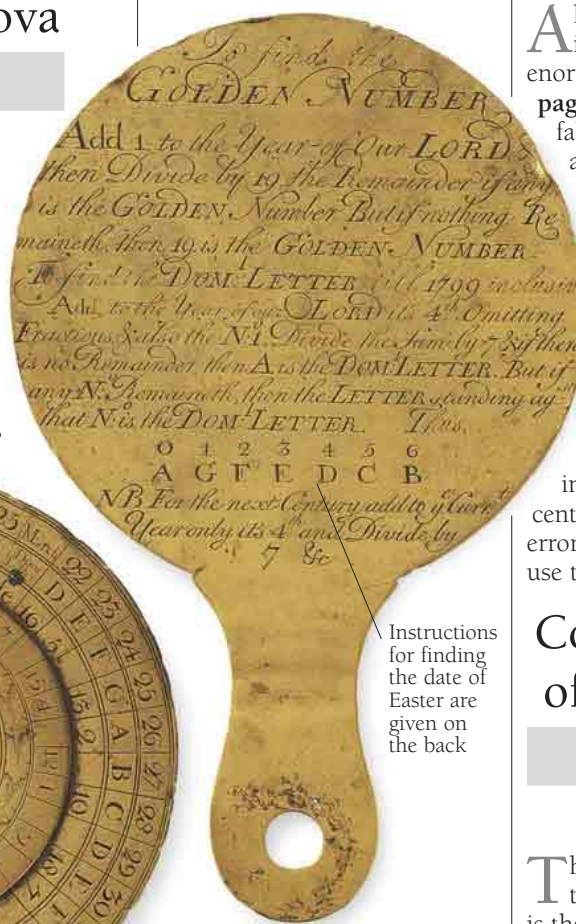 ova
To find the
GOLDEN NUMBER
Add 1 to the Year of Our LORD
then Divide by 19 the Remainder if any
is the GOLDEN Number But if nothing Re
maineth then 19 is the GOLDEN NUMBER
To find the DOM: LETTER till 1799 inclusiv
Add to the Year of our LORD its 4th Omitting
Fractions & also the No. 1. Divide the sum by 7 & if there
is no Remainder then A is the DOM: LETTER. But if
any No. Remaineth, then the LETTER standing agst
that No. is the DOM: LETTER. Thus.
0 1 2 3 4 5 6
A G F E D C B
NB. For the next Century add to ye Currt
Year only its 4th and Divide by
7 &c
Instructions
for finding
the date of
Easter are
given on
the back
22 23 24 25 26 27 28 29 30
D E F G A B C D E
A
enor
pag
fa
a
in
cent
error
use t
Co
of
Th
t
is the